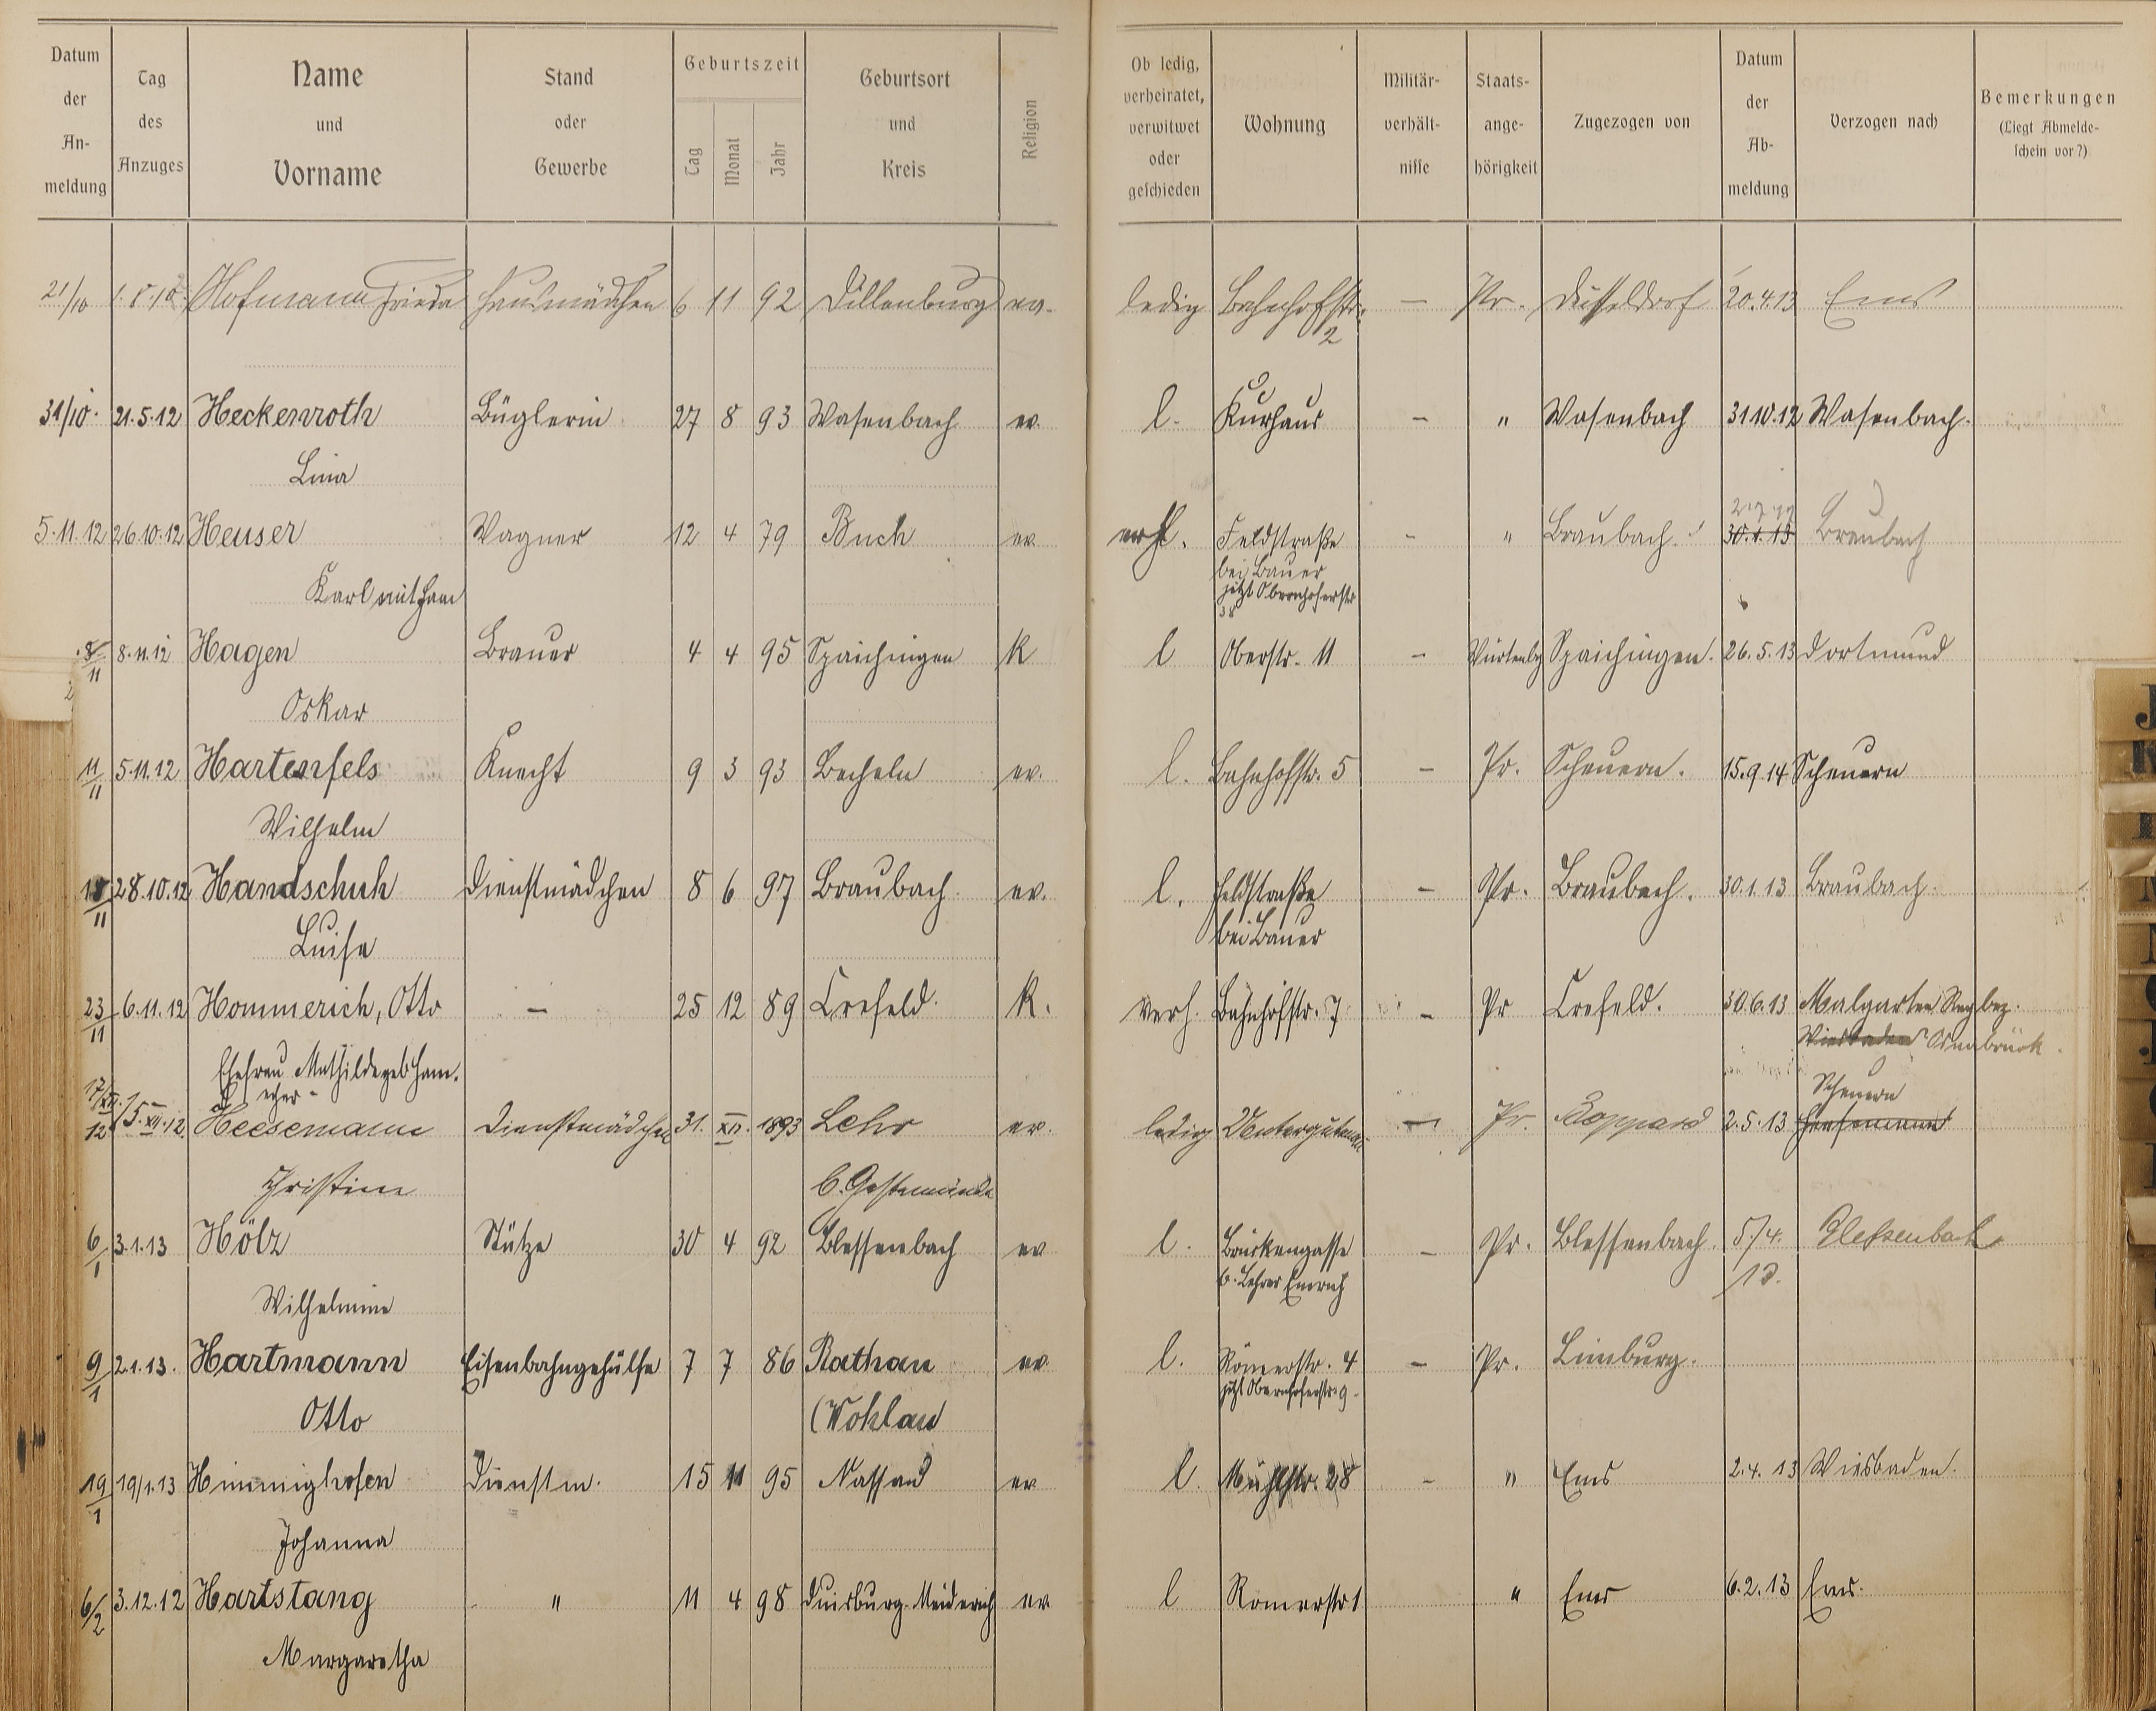 Datum der An- meldung | Tag des Anzuges | Name und Vorname | Stand oder Gewerbe | Geburtszeit Tag Monat Jahr | Geburtsort und Kreis | Religion | Ob ledig, verheiratet, verwitwet oder geschieden | Wohnung | Militär- verhält- nisse | Staats- ange- hörigkeit | Zugezogen von | Datum der Ab- meldung | Verzogen nach | Bemerkungen (Liegt Abmelde- schein vor?)
21/10 Hofmann Frieda Hausmädchen 6 11 92 Dillenburg ev. ledig Bahnhofstr. — Pr. Düsseldorf 20.4.13 Ems
2
31/10. 21.5.12 Heckenroth Büglerin 27 8 93 Wasenbach ev. l. Kurhaus – " Wasenbach 31 10.12 Wasenbach.
Lina
5.11.12 26.10.12 Heuser Wagner 12 4 79 Buch ev. verh. Feldstraße – " Braubach. 30.1.13 Braubach
bei Bauer
jetzt Obernhoferstr
38
Karl mit Fam
8/11 8.11.12 Hagen Brauer 4 4 95 Spaichingen K l Oberstr. 11 – Würtenbg Spaichingen. 26.5.13 Dortmund
Oskar
11/11 5.11.12 Hartenfels Knecht 9 3 93 Becheln ev. l. Bahnhofstr. 5 – Pr. Scheuern. 15.9.14 Scheuern
Wilhelm
18/11 28.10.12 Handschuh Dienstmädchen 8 6 97 Braubach. ev. l. Feldstraße – Pr. Braubach. 30.1.13 Braubach.
Luise bei Bauer
23/11 6.11.12 Hommerich, Otto – 25 12 89 Crefeld. K. verh. Bahnhofstr. 7 – Pr Crefeld. 30.6.13 Malgarten Reg bez.
Wiesbaden Osnabrück.
Ehefrau Mathilde geb Ham.
echer-
17/XII. 12 15.XII.12. Heesemann Dienstmädchen 31. XII. 1893 Lehr ev. ledig — Pr. Boppard 2.5.13 Scheuern
Christine b. Gestemünde
6/1 3.1.13 Hölz Stütze 30 4 92 Blessenbach ev l. Brückengasse – Pr. Blessenbach. 5/4. Blessenbach
b. Lehrer Emrich /13.
Wilhelmine
9/1 2.1.13. Hartmann Eisenbahngehülfe 7 7 86 Rathau ev. l. Römerstr. 4 – Pr. Limburg.
jetzt Obernhoferstr. 9.
Otto (Wohlau
19/1 19/1.13 Himmighofen Dienstm. 15 11 95 Nassau ev l. Mühlstr. 28 – " Ems 2.4.13 Wiesbaden.
Johanna
6/2 3.12.12 Hartstang " 11 4 98 Duisburg-Meiderich ev l Römerstr 1 " Ems 6.2.13 Ems.
Margaretha